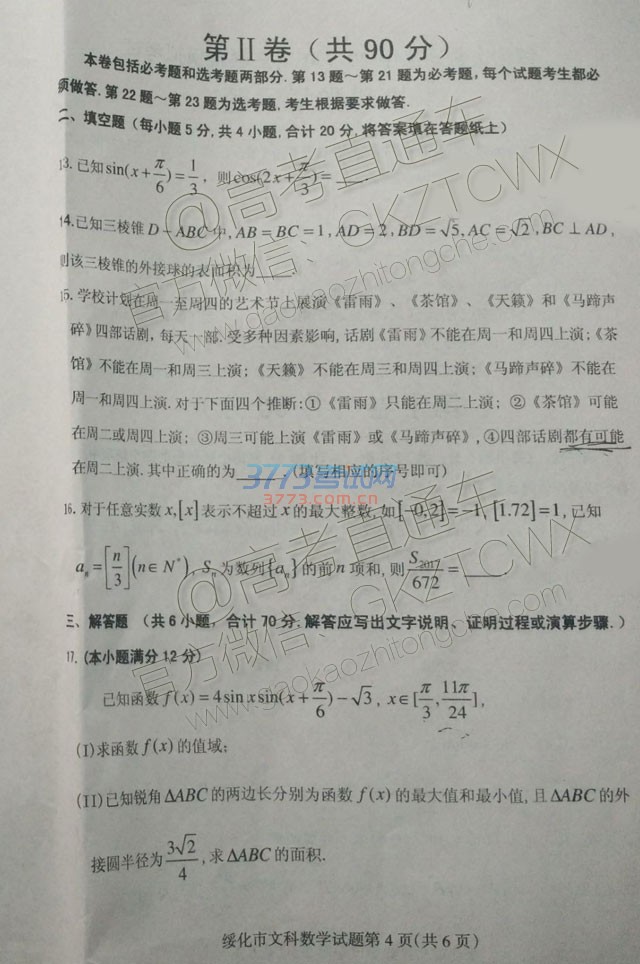 第 II 卷（共 90 分）
本卷包括必考题和选考题两部分.第 13 题～第 21 题为必考题,每个试题考生都必
须做答.第 22 题～第 23 题为选考题,考生根据要求做答.
二、填空题（每小题 5 分,共 4 小题,合计 20 分,将答案填在答题纸上）
13.已知sin(x+π/6)=1/3，则cos(2x+π/3)=____.
14.已知三棱锥 D-ABC 中, AB=BC=1, AD=2, BD=√5, AC=√2, BC⊥AD,
则该三棱锥的外接球的表面积为____.
15.学校计划在周一至周四的艺术节上展演《雷雨》、《茶馆》、《天籁》和《马蹄声
碎》四部话剧,每天一部.受多种因素影响,话剧《雷雨》不能在周一和周四上演;《茶
馆》不能在周一和周三上演;《天籁》不能在周三和周四上演;《马蹄声碎》不能在
周一和周四上演.对于下面四个推断:①《雷雨》只能在周二上演; ②《茶馆》可能
在周二或周四上演; ③周三可能上演《雷雨》或《马蹄声碎》,④四部话剧都有可能
在周二上演.其中正确的为____.(填写相应的序号即可)
16.对于任意实数 x,[x]表示不超过 x 的最大整数,如[-0.2]=-1, [1.72]=1,已知
aₙ=[n/3](n∈N*), Sₙ 为数列{aₙ}的前 n 项和,则 S₂₀₁₇/672 =____
三、解答题 （共 6 小题，合计 70 分.解答应写出文字说明、证明过程或演算步骤.）
17.(本小题满分 12 分)
已知函数 f(x)=4sin x sin(x+π/6)-√3, x∈[π/3, 11π/24],
(I)求函数 f(x) 的值域;
(II)已知锐角 ΔABC 的两边长分别为函数 f(x) 的最大值和最小值,且 ΔABC 的外
接圆半径为 3√2/4 ,求 ΔABC 的面积.
绥化市文科数学试题第 4 页(共 6 页)
@高考直通车
官方微信：GKZTCWX
www.gaokaozhitongche.com
3773考试网
3773.com.cn
@高考直通车
官方微信：GKZTCWX
www.gaokaozhitongche.com